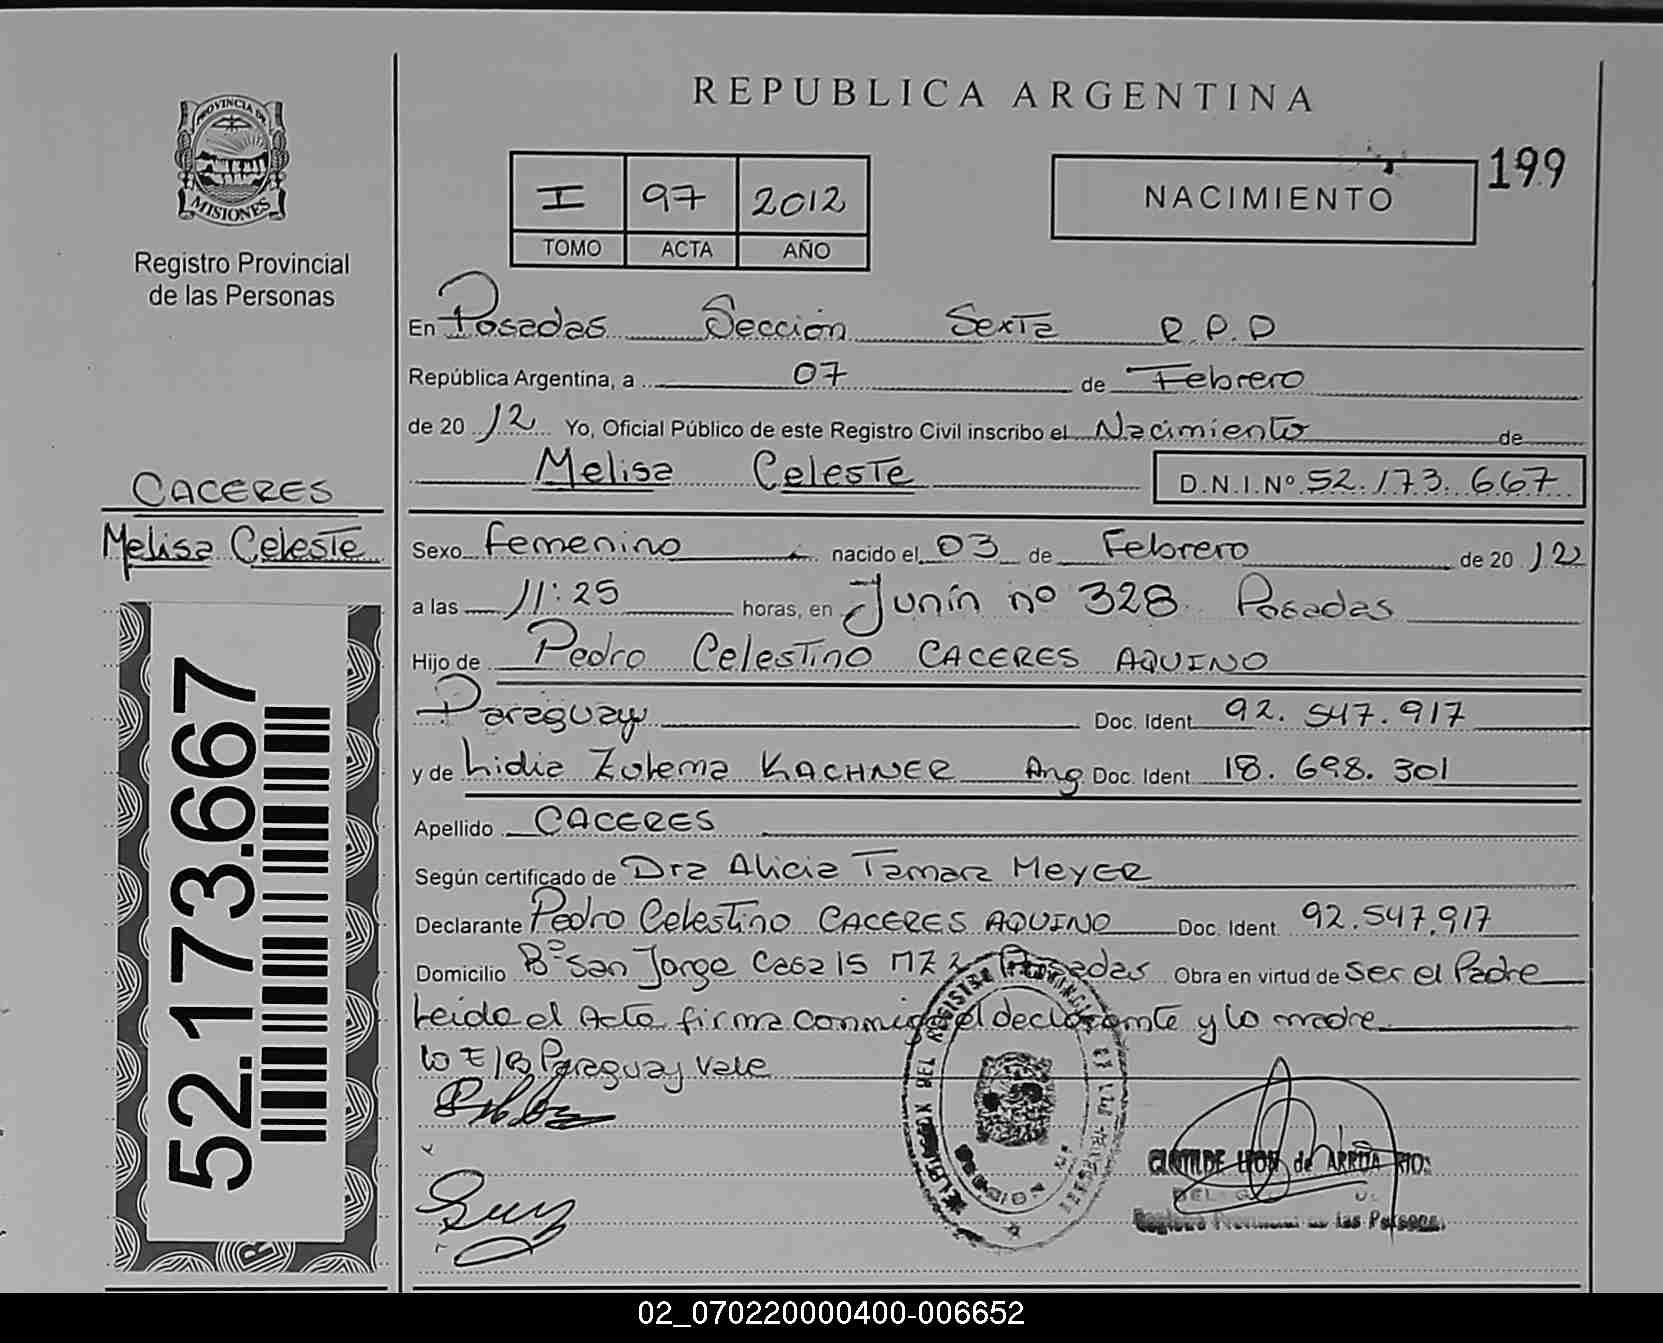 REPUBLICA ARGENTINA
PROVINCIA DE
MISIONES
Registro Provincial
de las Personas
I 97 2012
TOMO ACTA AÑO
NACIMIENTO
199
En Posadas Sección Sexta R.P.P
República Argentina, a 07 de Febrero
de 20 12 Yo, Oficial Público de este Registro Civil inscribo el Nacimiento de
Melisa Celeste D.N.I.Nº 52.173.667
CACERES
Melisa Celeste
Sexo femenino nacido el 03 de Febrero de 20 12
a las 11:25 horas, en Junín nº 328 Posadas
Hijo de Pedro Celestino CACERES AQUINO
Paraguay Doc. Ident. 92.547.917
y de Lidia Zulema KACHNER Arg Doc. Ident. 18.698.301
Apellido CACERES
Según certificado de Dra Alicia Tamara Meyer
Declarante Pedro Celestino CACERES AQUINO Doc. Ident. 92.547.917
Domicilio Bº San Jorge Casa 15 MZ Posadas Obra en virtud de ser el Padre
Leida el Acta firma conmigo el declarante y la madre
lo E/B Paraguay Vale
52.173.667
CLOTILDE de ARRUA RIOS
Registro Provincial de las Personas
02_070220000400-006652